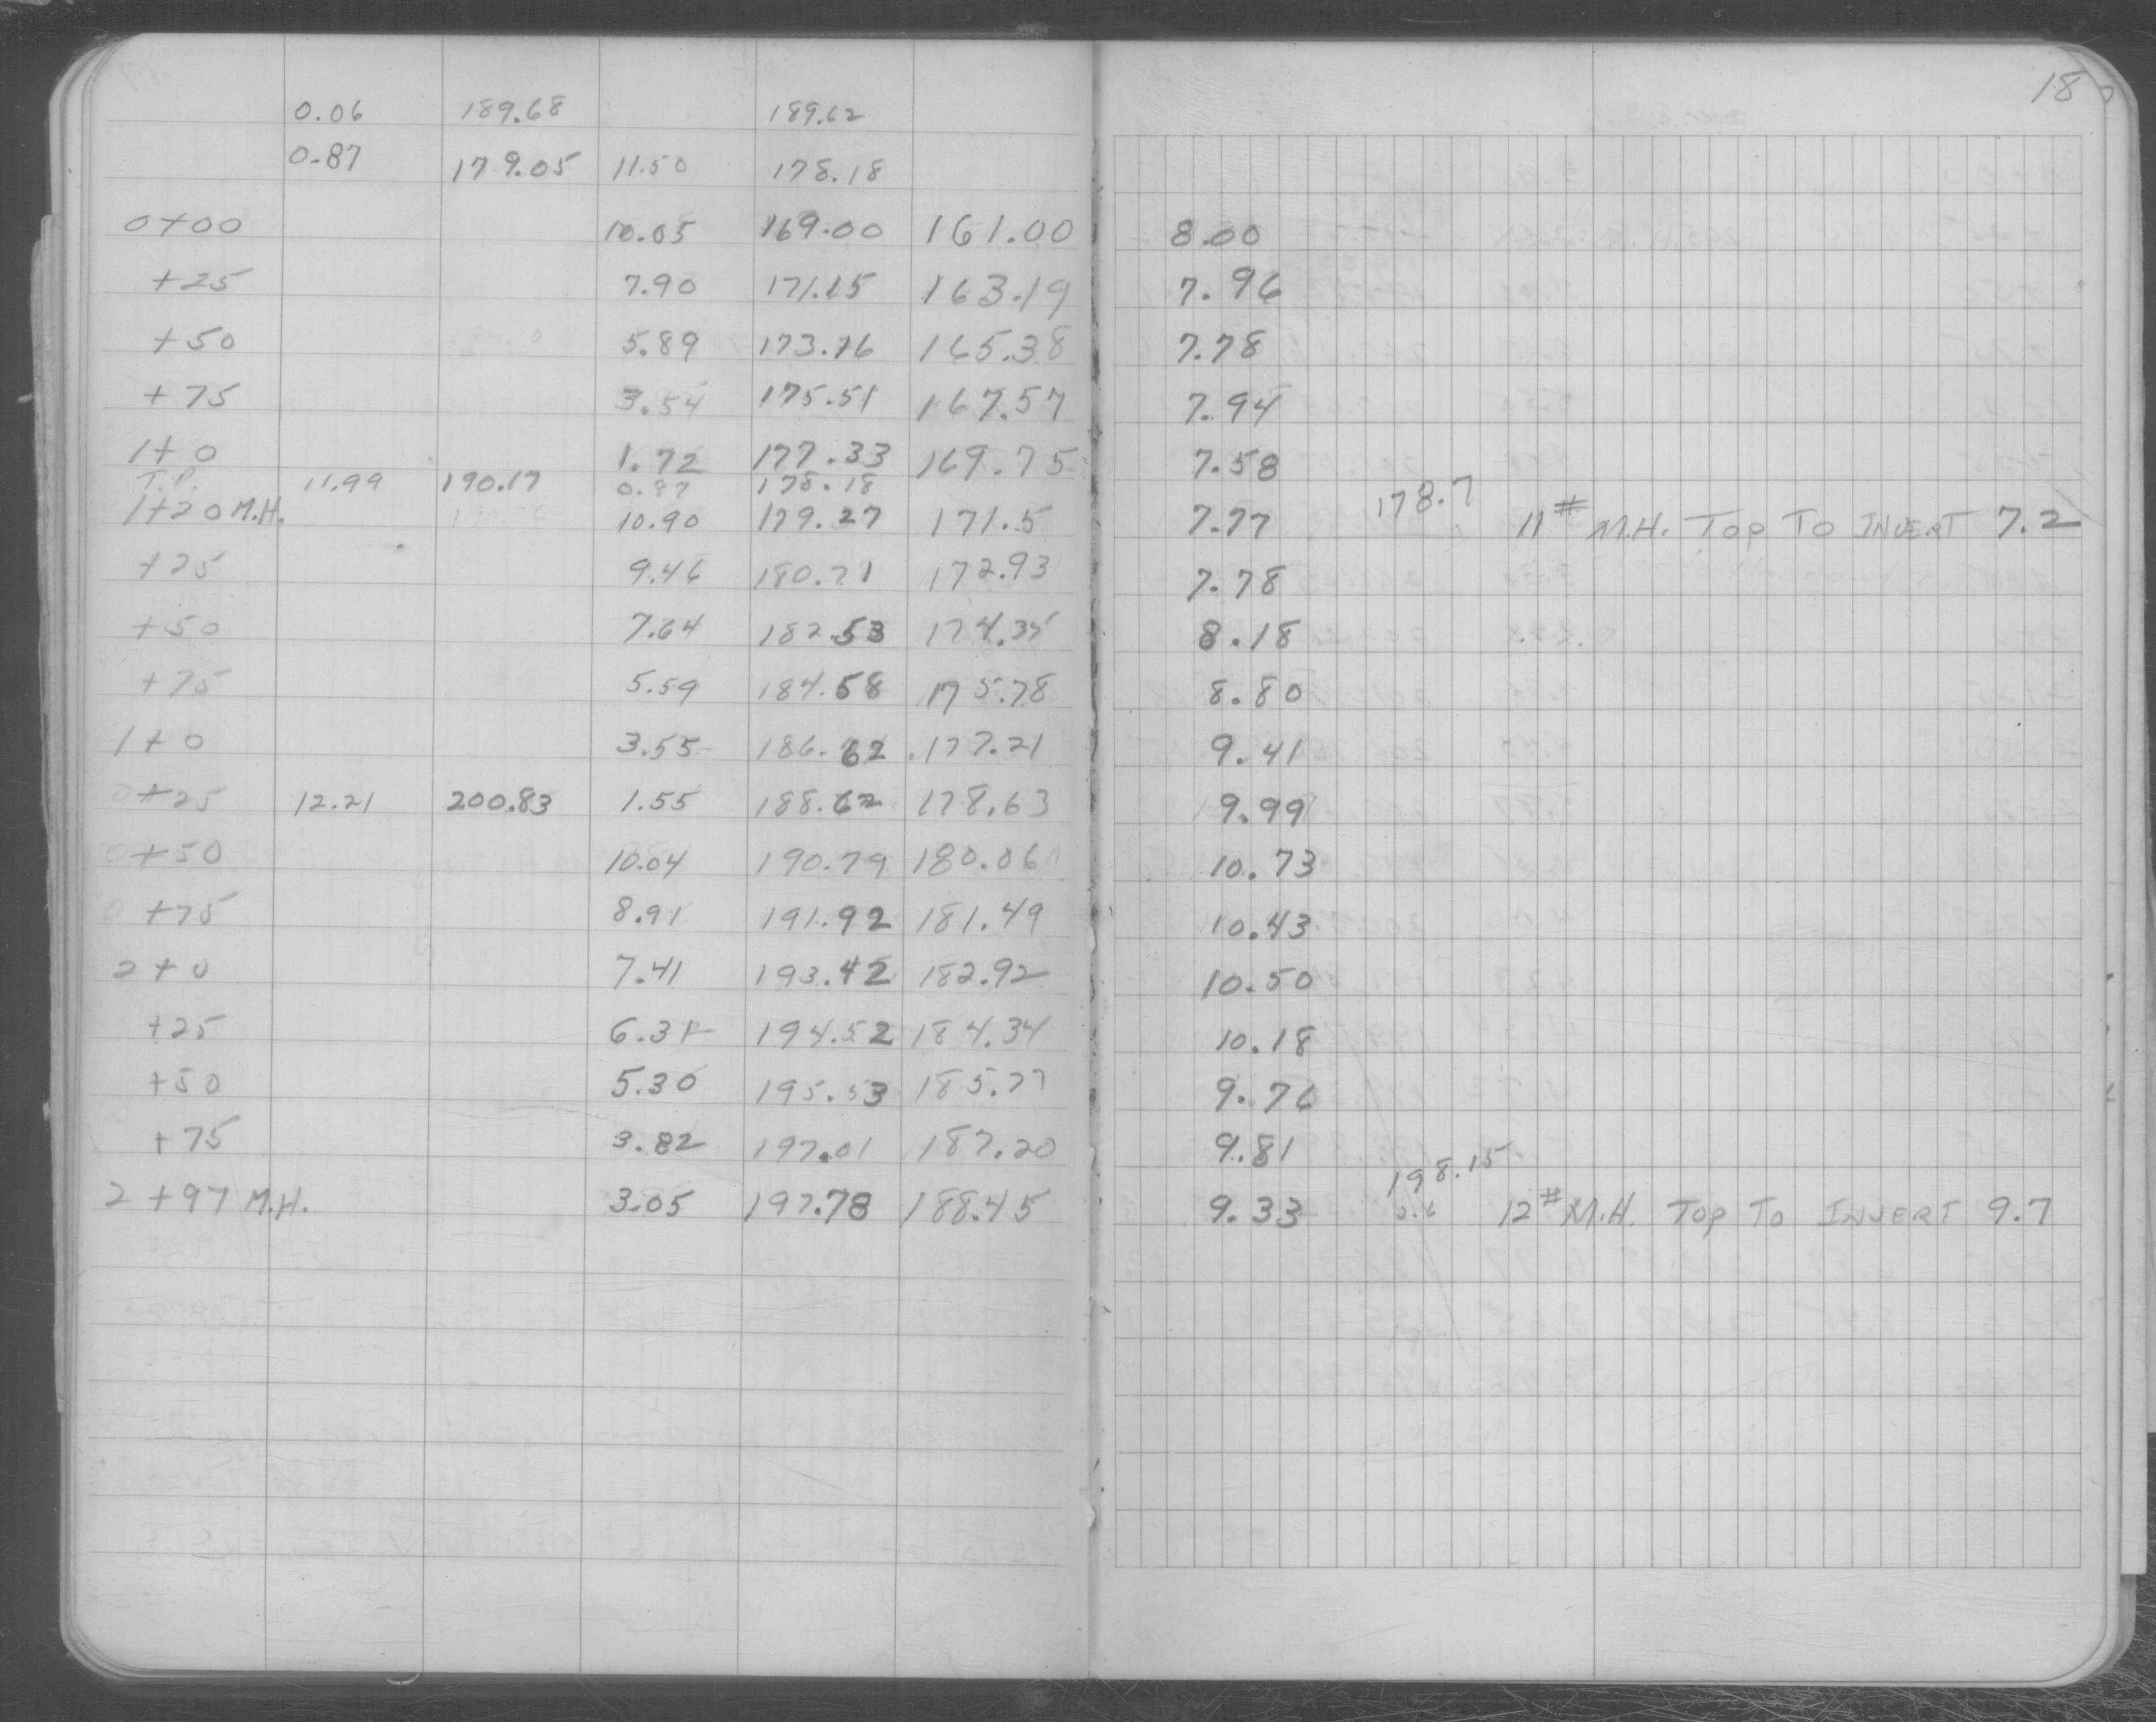 18
0.06 189.68 189.62
0.87 179.05 11.50 178.18
0+00 10.05 169.00 161.00 8.00
+25 7.90 171.15 163.19 7.96
+50 5.89 173.16 165.38 7.78
+75 3.54 175.51 167.57 7.94
1+0 1.72 177.33 169.75 7.58
T.P. 11.99 190.17 0.87 178.18
1+20 M.H. 10.90 179.27 171.5 7.77 178.7 11# M.H. TOP TO INVERT 7.2
+25 9.46 180.71 172.93 7.78
+50 7.64 182.53 174.35 8.18
+75 5.59 184.58 175.78 8.80
1+0 3.55 186.62 177.21 9.41
0+25 12.21 200.83 1.55 188.62 178.63 9.99
0+50 10.04 190.79 180.06 10.73
0+75 8.91 191.92 181.49 10.43
2+0 7.41 193.42 182.92 10.50
+25 6.31 194.52 184.34 10.18
+50 5.30 195.53 185.77 9.76
+75 3.82 197.01 187.20 9.81
198.15
2+97 M.H. 3.05 197.78 188.45 9.33 12# M.H. TOP TO INVERT 9.7